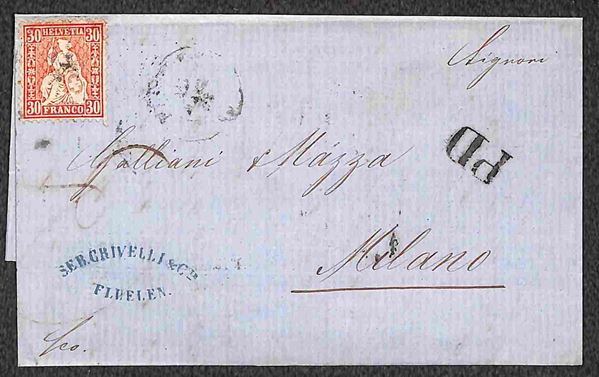 30 HELVETIA 30
30 FRANCO 30
Signori
Galliani & Mazza
PD
Milano
SEB. CRIVELLI & Cie
FLUELEN.
fco.